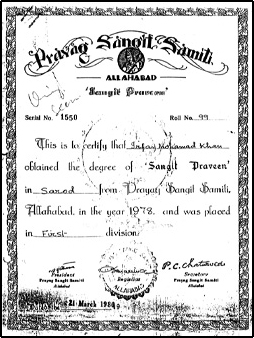 Prayag Sangit Samiti,
ALLAHABAD
'Sangit Praveen'
Serial No. 1550 Roll No. 99
This is to certify that Irfan Mohamad Khan
obtained the degree of 'Sangit Praveen'
in Sarod from Prayag Sangit Samiti,
Allahabad, in the year 1978, and was placed
in First division.
President
Prayag Sangit Samiti
Allahabad
Registrar
ALLAHABAD
P. C. Chatterved
Secretary
Prayag Sangit Samiti
Allahabad
21 March 198